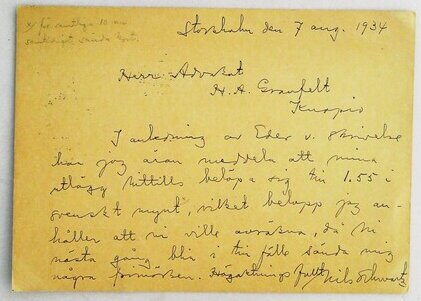 Stockholm den 7 aug. 1934
Herr Advokat
H. A. Granfelt
Kuopio
I anledning av Eder v. skrivelse
har jag äran meddela att mina
utlägg hittills belöpa sig till 1.55 i
svenskt mynt, vilket belopp jag an-
håller att ni ville avräkna, då Ni
nästa gång blir i tillfälle sända mig
några frimärken. Högaktningsfullt Nils Schwartz